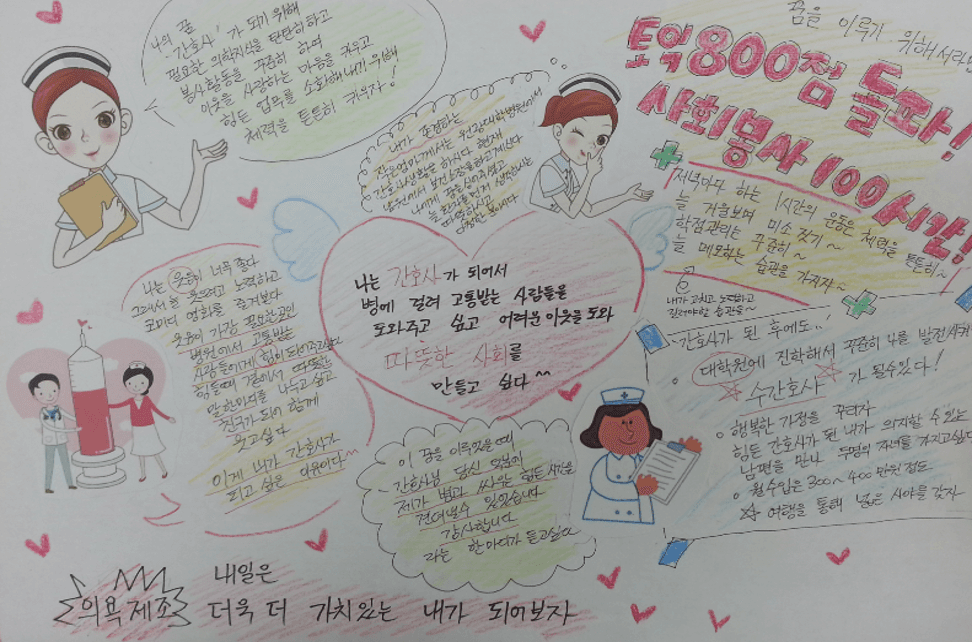 나의 꿈
'간호사'가 되기 위해
필요한 의학지식을 탄탄히하고
봉사활동을 꾸준히 하며
이웃을 사랑하는 마음을 키우고
힘든 업무를 소화해내기 위해
체력을 튼튼히 키우자!
내가 존경하는
작은엄마께서는 원광대학병원에서
간호사생활을 하시다 현재
나에게 꿈을 심어주셨고
꿈을 이루기 위해서라면
토익 800점 돌파!
사회봉사 100시간!
저녁마다 하는 1시간의 운동은 체력을 튼튼히~
늘 거울보며 미소 짓기~
학점관리는 꾸준히~
늘 메모하는 습관을 가지자~
내가 고치고 노력하고
길러야할 습관들~
나는 웃음이 너무 좋다
그래서 늘 웃으려고 노력하고
코미디 영화를 즐겨보다
웃음이 가장 필요한 곳인
병원에서 고통받는
사람들에게 힘이 되어주고싶다
힘들때 곁에서 따뜻한
말한마디를 나누고 싶고
친구가 되어 함께
웃고싶다
이게 내가 간호사가
되고 싶은 이유이다~
나는 간호사가 되어서
병에 걸려 고통받는 사람들을
도와주고 싶고 어려운 이웃을 도와
따뜻한 사회를
만들고 싶다^^
이 꿈을 이루었을 때
간호사님 당신 덕분에
제가 병과 싸우는 힘든 시간을
견뎌낼수 있었습니다
감사합니다
라는 한마디가 듣고싶다
간호사가 된 후에도..
대학원에 진학해서 꾸준히 나를 발전시켜
수간호사가 될수있다!
행복한 가정을 꾸리자
힘든 간호사가 된 내가 의지할 수 있는
남편을 만나 두명의 자녀를 가지고싶다
월수입은 300~400만원 정도
여행을 통해 넓은 시야를 갖자
의욕제조
내일은
더욱 더 가치있는 내가 되어보자